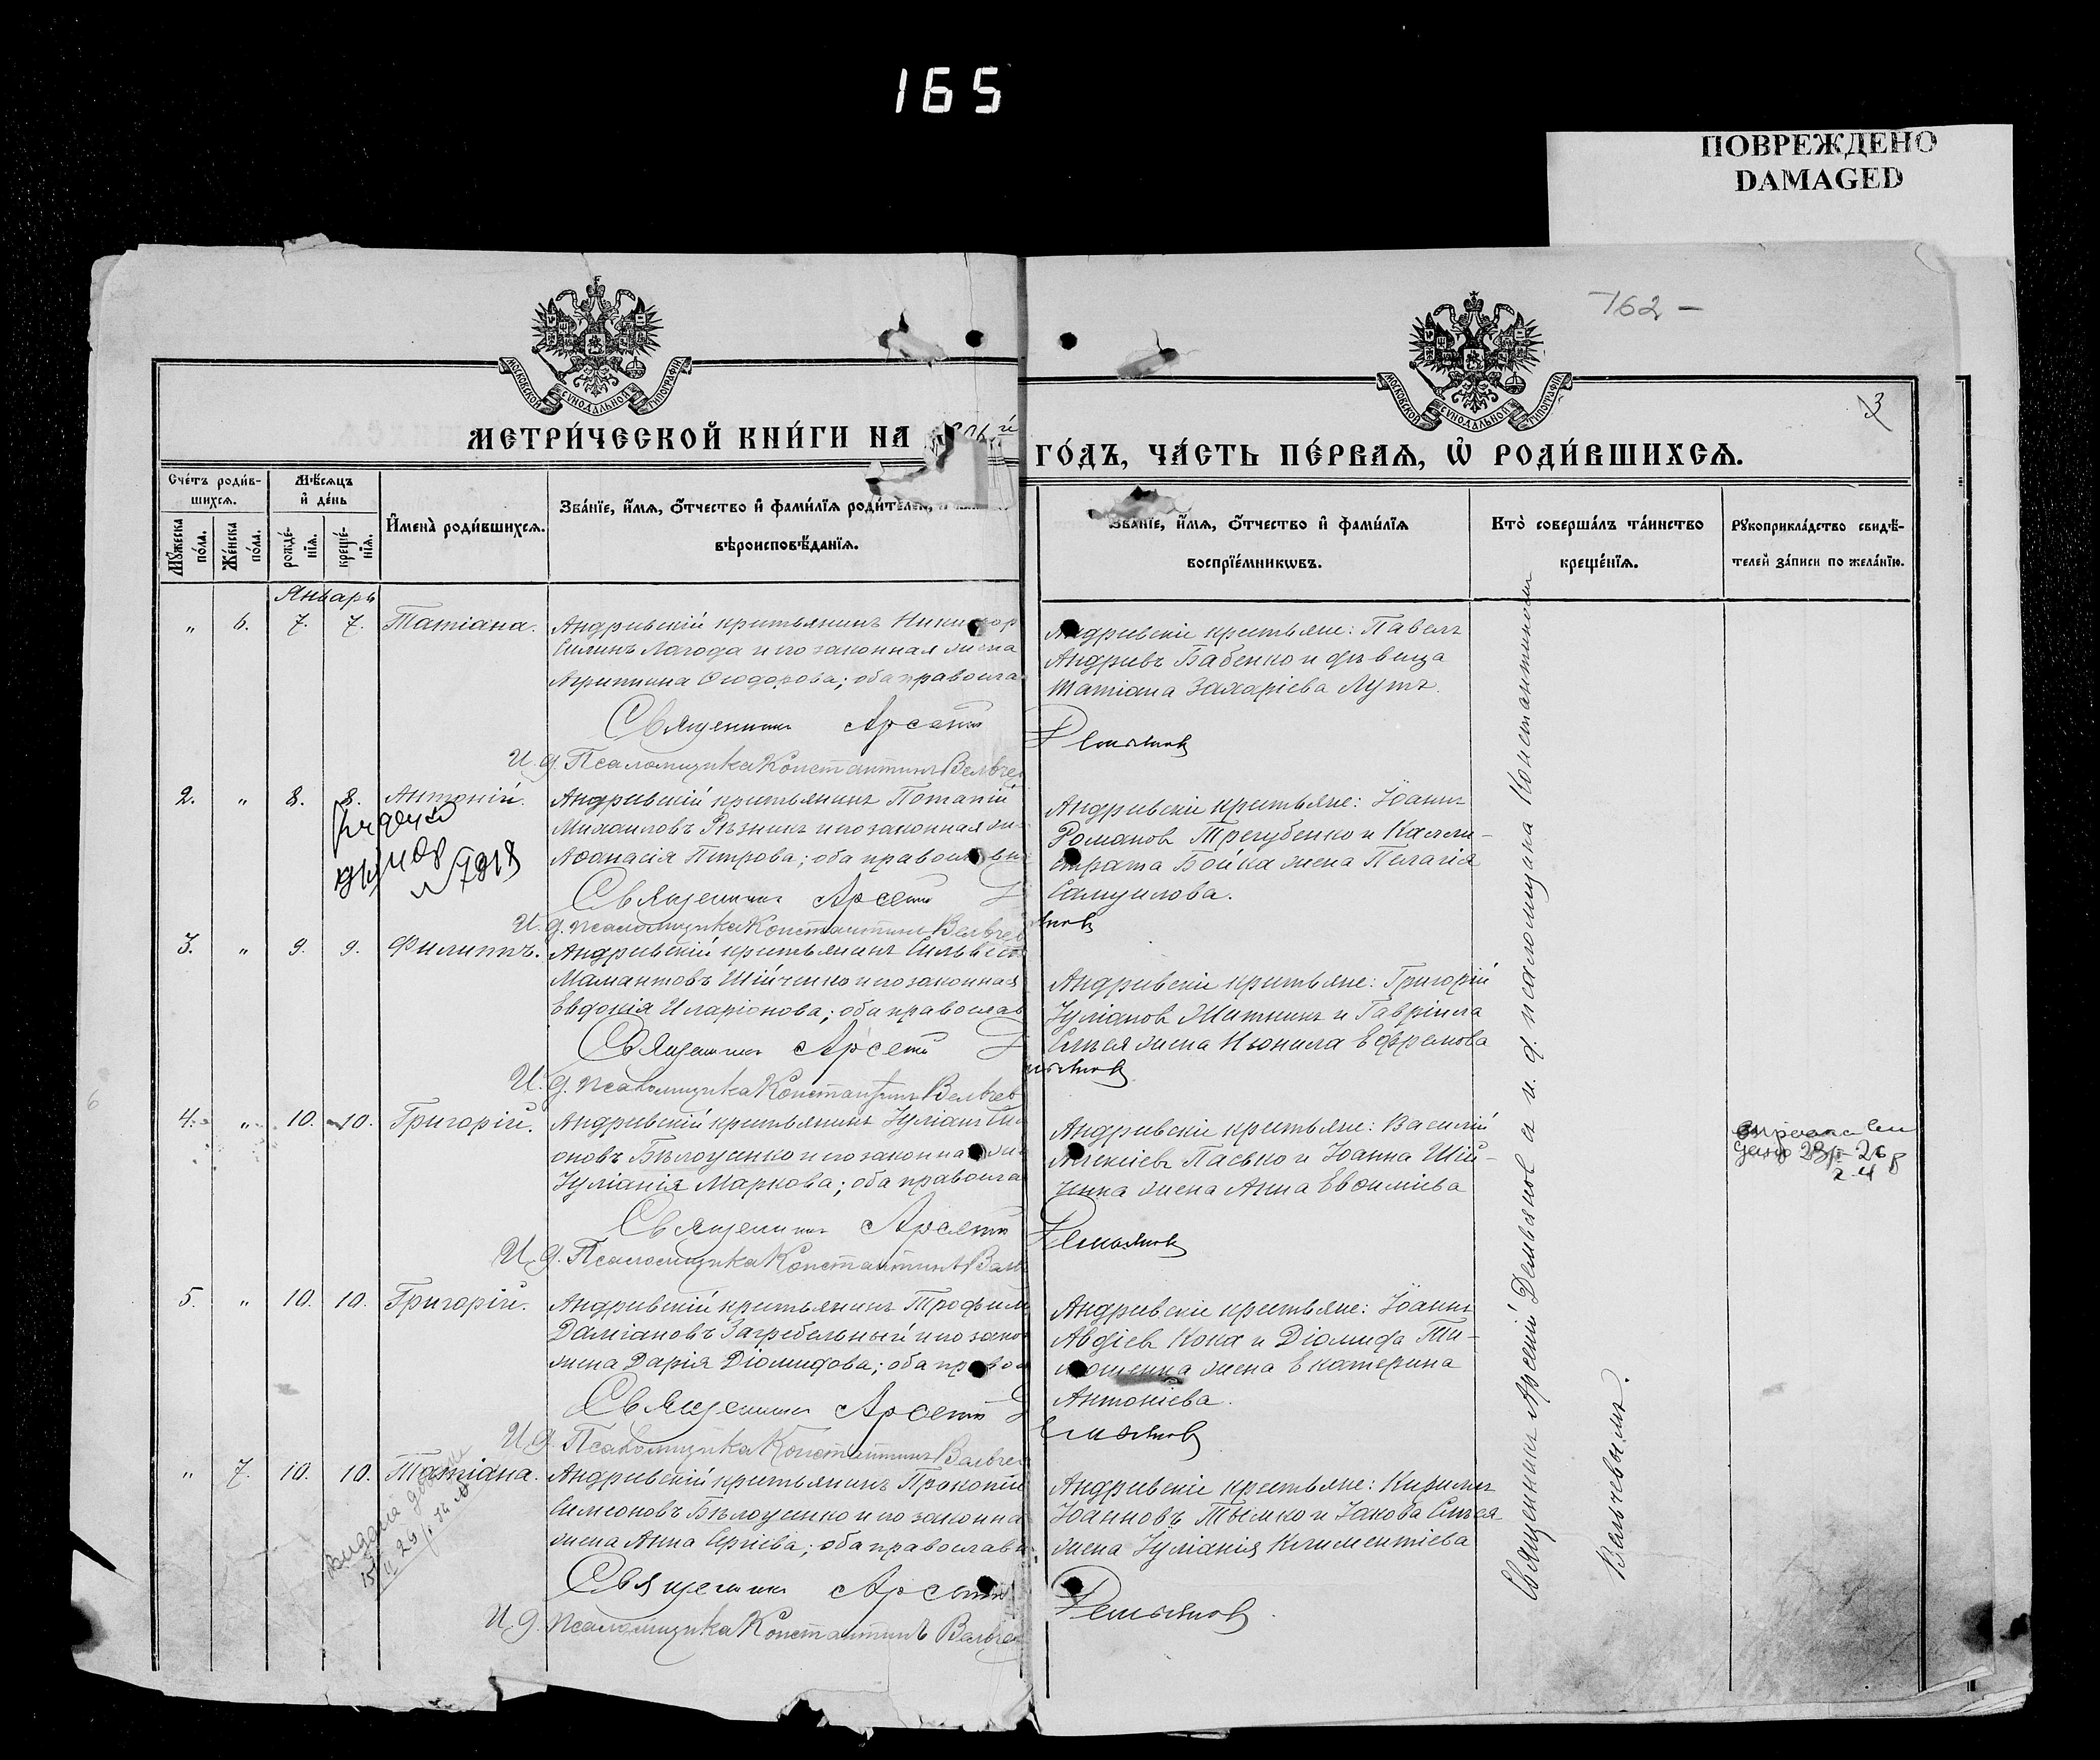 165
ПОВРЕЖДЕНО
DAMAGED
762 —
3
МОСКОВСКОЙ СѴНОДАЛЬНОЙ ТИПОГРАФІИ
МОСКОВСКОЙ СѴНОДАЛЬНОЙ ТИПОГРАФІИ
МЕТРИ́ЧЕСКОЙ КНИ́ГИ НА
ГО́ДЪ, ЧА́СТЬ ПЕ́РВАѦ, Ѡ҆ РОДИ́ВШИХСѦ.
Сче́тъ роди́в-
шихсѧ.
Мѹ́жеска по́ла.
Же́нска по́ла.
Мѣ́сѧцъ
и҆ де́нь
рожде́-
нїѧ.
креще́-
нїѧ.
И҆мена̀ роди́вшихсѧ.
Зва́нїе, и҆́мѧ, ѻ҆́тчество и҆ фами́лїѧ роди́телей,
вѣроисповѣ́данїѧ.
Зва́нїе, и҆́мѧ, ѻ҆́тчество и҆ фами́лїѧ
воспрїе́мникѡвъ.
Кто̀ соверша́лъ та́инство
креще́нїѧ.
Рѹкоприкла́дство свидѣ́-
телей за́писи по жела́нїю.
Январь
" 6. 7. 7. Татіана.
Андреевскій крестьянинъ Никифор
Силинъ Лагода и его законная жена
Агриппина Ѳеодорова; оба правосла
Священникъ Арсеній
И. д. Псаломщика Константинъ Вельчев
Андреевскіе крестьяне: Павелъ
Андреевъ Бабенко и дѣвица
Татіана Захаріева Лутъ.
Демьянов
2. " 8. 8. Антоній.
Андреевскій крестьянинъ Потапій
Михаиловъ Рѣзникъ и его законная же-
Аѳанасія Петрова; оба православн
Священникъ Арсеній Д
И. д. псаломщика Константинъ Вельчев
Андреевскіе крестьяне: Іоаннъ
Романовъ Трегубенко и Калли-
страта Бойка жена Пелагія
Самуилова.
янов
3. " 9. 9. Филиппъ.
Андреевскій крестьянинъ Сильвест
Мамантовъ Шійченко и его законная
Евдокія Иларіонова; оба православ
Священникъ Арсеній Д
И. д. псаломщика Константинъ Вельчев
Андреевскіе крестьяне: Григорій
Іуліановъ Житникъ и Гавріила
жена Неонила Ефремова
мьянов
4. " 10. 10. Григорій.
Андреевскій крестьянинъ Іуліанъ Сим
оновъ Бѣлоусенко и его законная же
Іуліанія Маркова; оба правосла
Священникъ Арсеній
И. д. Псаломщика Константинъ Вель
Андреевскіе крестьяне: Василій
Алексіевъ Пасько и Іоанна Шій-
ченка жена Анна Евѳиміева
Демьянов
5. " 10. 10. Григорій.
Андреевскій крестьянинъ Трофим
Даміановъ Загребельный и его закон
жена Дарія Діомидова; оба правос
Священникъ Арсеній Д
И. д. Псаломщика Константинъ Вельчев
Андреевскіе крестьяне: Іоаннъ
Авдіевъ Кока и Діомида Ти-
мошенка жена Екатерина
Антоніева.
емьянов
" 7. 10. 10. Татіана.
Андреевскій крестьянинъ Прокопій
Симеоновъ Бѣлоусенко и его законна
жена Анна Сергіева; оба православн
Священникъ Арсеній
И. д. псаломщика Константинъ Вельчев
Андреевскіе крестьяне: Кириллъ
Іоанновъ Тымко и Іакова
жена Іуліанія Климентіева
Демьянов
Священникъ Арсеній Демьянов а и. д. псаломщика Константином
Вельчевымъ.